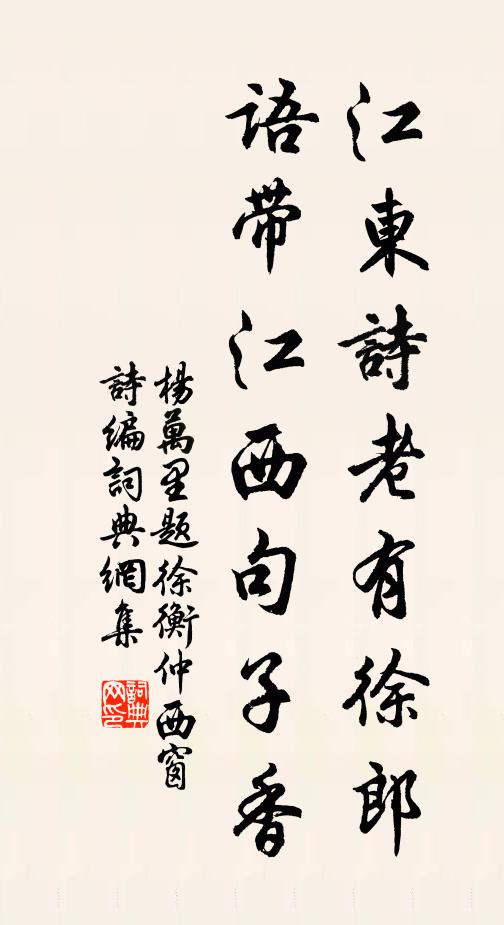 江東詩老有徐郎
語帶江西句子香
楊萬里題徐衡仲西窗
詩編詞典網集
詞典網印